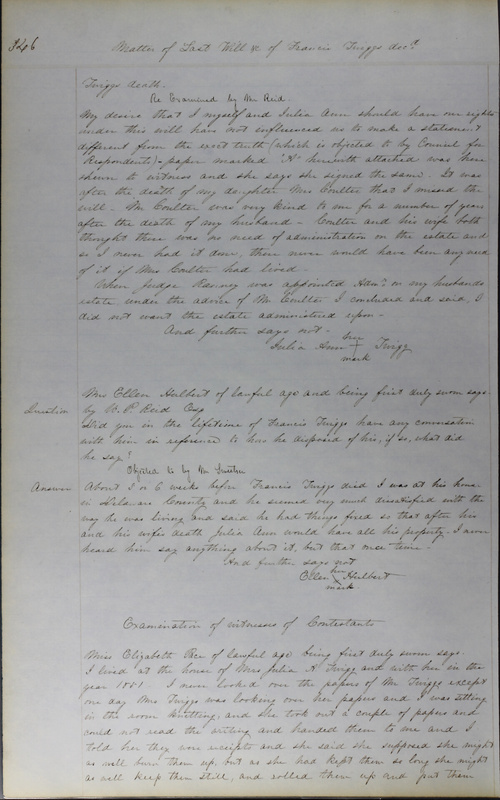 346
Matter of Last Will &c of Francis Twiggs decd
Twiggs death.
Re Examined by Mr Reid.
My desire that I myself and Julia Ann should have our rights
under this will have not influenced us to make a statement
different from the exact truth (which is objected to by Counsel for
Respondents) - paper marked "A" herewith attached was here
shown to witness and she says she signed the same. It was
after the death of my daughter Mrs Coulter that I missed the
will. Mr Coulter was very kind to me for a number of years
after the death of my husband - Coulter and his wife both
thought there was no need of administration on the estate and
so I never had it done, there never would have been any need
of it if Mrs Coulter had lived.
When Judge Ranney was appointed Admr on my husbands
estate under the advice of Mr Coulter I concluded and said, I
did not want the estate administered upon -
And further says not -
Julia Ann her Twigg
mark
Mrs Ellen Hulbert of lawful age and being first duly sworn says
Question
by R. P. Reid Esq
Did you in the lifetime of Francis Twiggs have any conversation
with him in reference to how he disposed of his, if so, what did
he say?
Objected to by Mr
Answer
About 5 or 6 weeks before Francis Twiggs died I was at his home
in County and he seemed very much dissatisfied with the
way he was living and said he had things fixed so that after his
and his wifes death Julia Ann would have all his property. I never
heard him say anything about it, but that once time.
And further says not
Ellen her Hulbert
mark
Examination of witnesses of Contestants
Miss Elizabeth of lawful age being first duly sworn says.
I lived at the house of Mrs Julia A Twigg and with her in the
year 1881 I never looked over the papers of Mr Twiggs except
one day Mrs Twigg was looking over her papers and I was sitting
in the room knitting, and she took out a couple of papers and
could not read the writing and handed them to me and I
told her they were receipts and she said she supposed she might
as well burn them up, but as she had kept them so long she might
as well keep them still, and rolled them up and put them